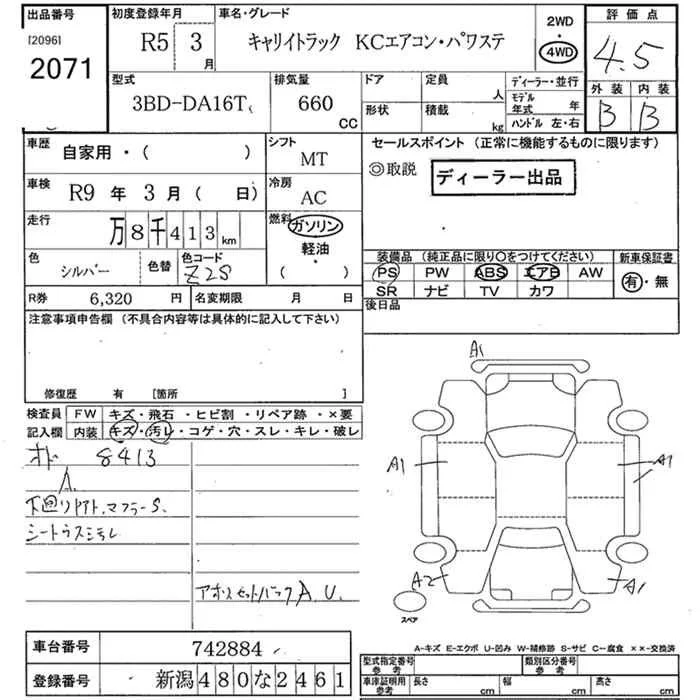 出品番号
[2096]
2071
初度登録年月
R5 3
月
車名・グレード
キャリイトラック KCエアコン・パワステ
2WD
・
4WD
評価点
4.5
型式
3BD-DA16T
排気量
660
CC
ドア
定員
人
形状
積載
kg
ディーラー・並行
モデル
年式 年
ハンドル 左・右
外装 内装
B B
車歴
自家用・( )
シフト
MT
車検
R9 年 3 月 ( 日)
冷房
AC
走行
万8千413km
燃料
ガソリン
軽油
( )
色
シルバー
色替
色コード
Z2S
R券 6,320 円
名変期限 月 日
セールスポイント (正常に機能するものに限ります)
◎取説
ディーラー出品
装備品 (純正品に限り○をつけてください)
新車保証書
PS PW ABS エアB AW
SR ナビ TV カワ
有・無
後日品
注意事項申告欄 (不具合内容等は具体的に記入して下さい)
修復歴 有 [箇所 ]
検査員
記入欄
FW キズ・飛石・ヒビ割・リペア跡・×要
内装 キズ・汚レ・コゲ・穴・スレ・キレ・破レ
オド 8413
A.
下廻り ・マフラーS.
シートウスミ
A.U.
A1
A1
A1
A2
A1
スペア
A-キズ E-エクボ U-凹み W-補修跡 S-サビ C-腐食 ××-交換済
車台番号 742884
登録番号 新潟480な2461
型式指定番号
参考
類別区分番号
参考
車庫証明用
参考
長さ cm
幅 cm
高さ cm